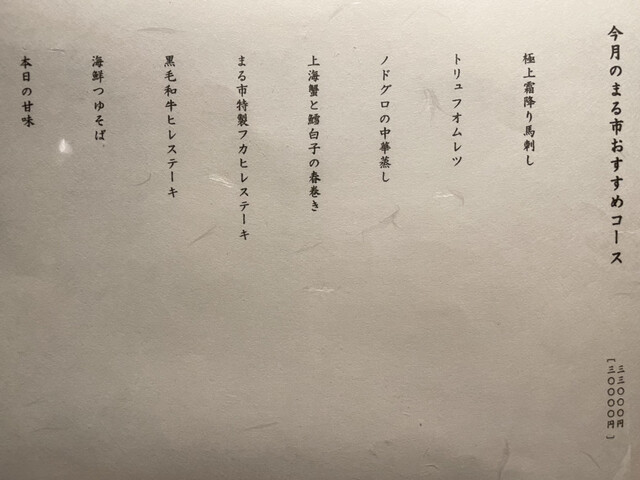 今月のまる市おすすめコース
三三〇〇〇円
〔三〇〇〇〇円〕
極上霜降り馬刺し
トリュフオムレツ
ノドグロの中華蒸し
上海蟹と鱈白子の春巻き
まる市特製フカヒレステーキ
黒毛和牛ヒレステーキ
海鮮つゆそば
本日の甘味